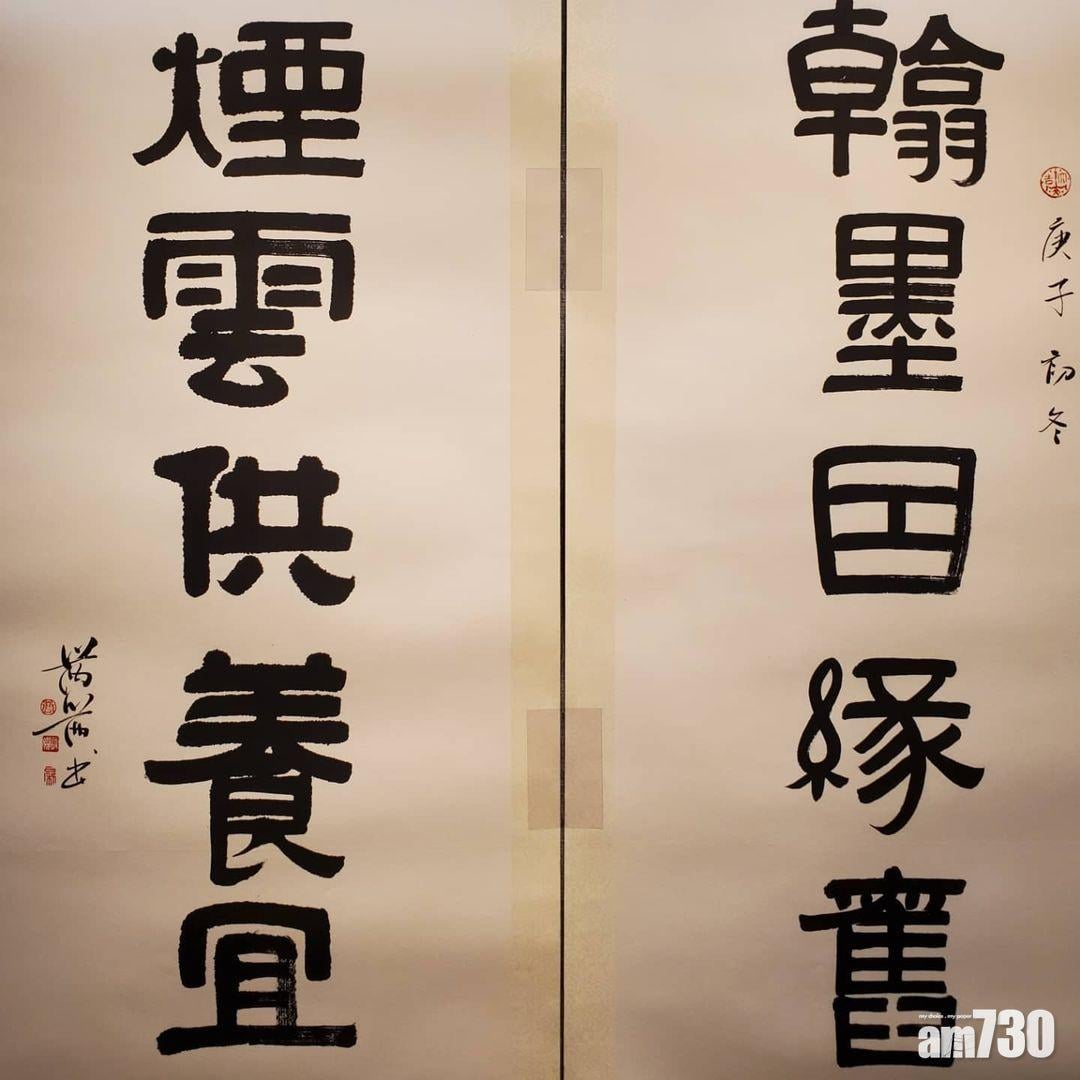 庚子初冬
翰墨因緣舊
煙雲供養宜
my choice . my paper
am730